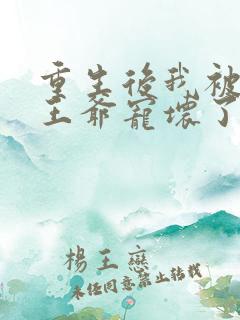 重生後我被
王爺寵壞了
楊王戀
未經同意禁止轉載